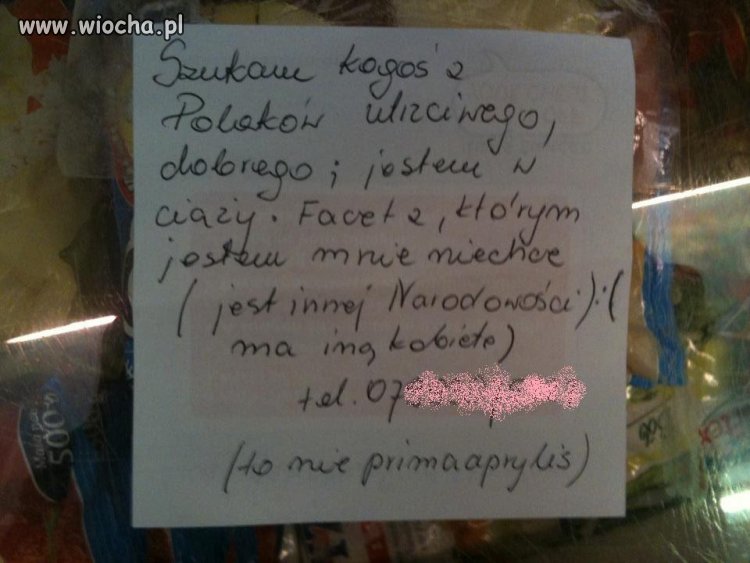 www.wiocha.pl
Szukam kogoś z
Polaków uczciwego,
dobrego; jestem w
ciąży. Facet z, którym
jestem mnie niechce
(jest innej Narodowości):(
ma iną kobiete)
tel. 07
(to nie primaaprylis)
500%